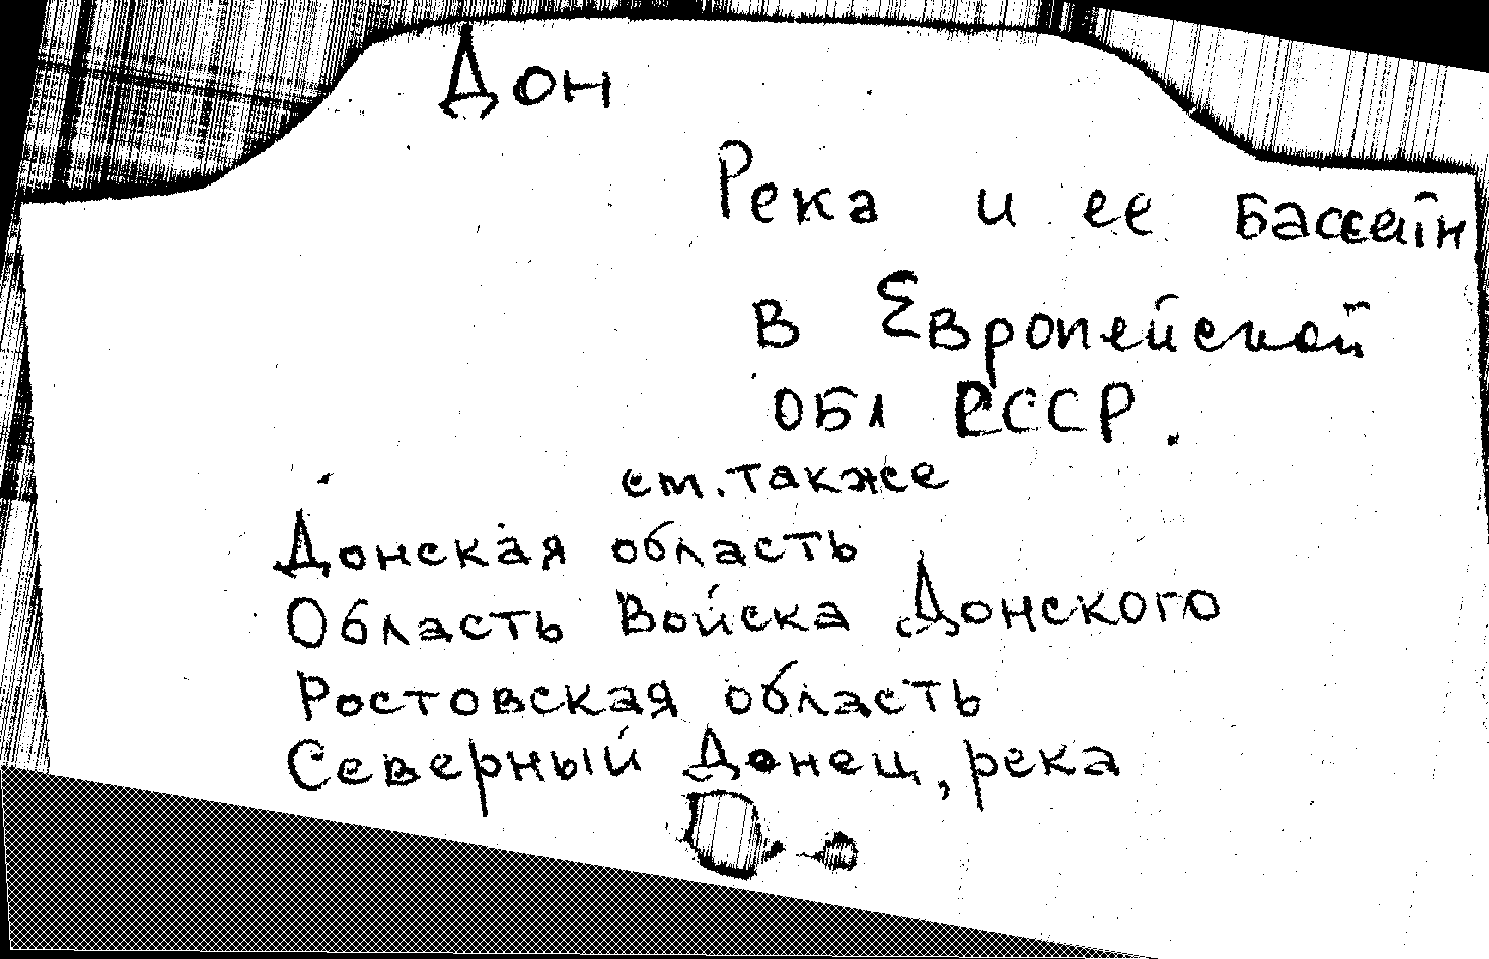 Дон
Река и ее бассейн
в Европейской
обл РССР.
см. также
Донская область
Область Войска Донского
Ростовская область
Северный Донец, река